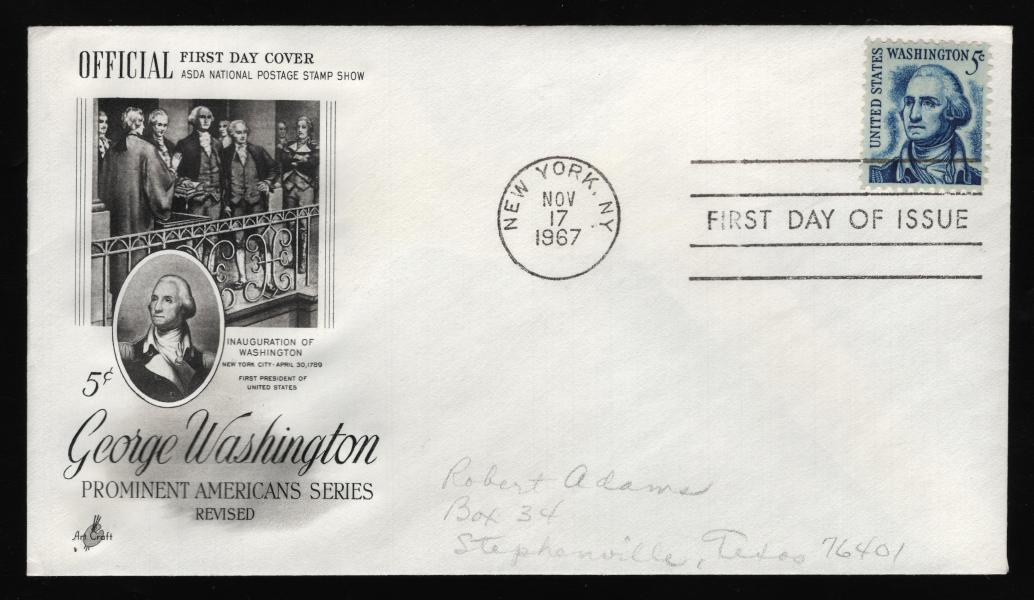 OFFICIAL FIRST DAY COVER
ASDA NATIONAL POSTAGE STAMP SHOW
UNITED STATES
WASHINGTON 5¢
NEW YORK, NY
NOV
17
1967
FIRST DAY OF ISSUE
INAUGURATION OF
WASHINGTON
NEW YORK CITY - APRIL 30, 1789
FIRST PRESIDENT OF
UNITED STATES
5¢
George Washington
PROMINENT AMERICANS SERIES
REVISED
Art Craft
Robert Adams
Box 34
Stephenville, Texas 76401